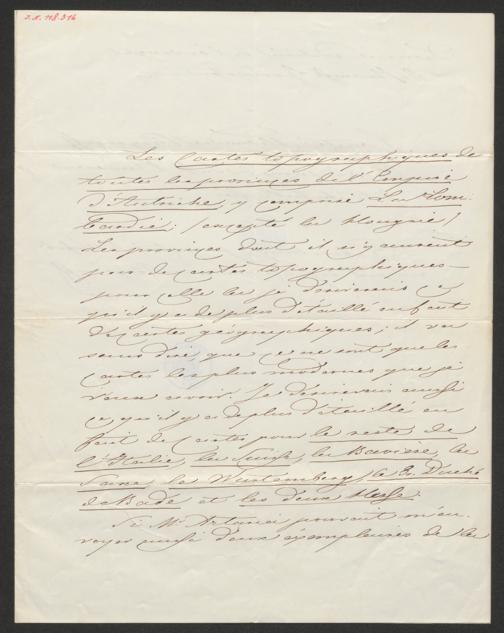 I.N. 118.316
Les Cartes topographiques de
toutes les provinces de l'Empire
d'Autriche, y compris la Lom-
bardie: /excepté la Hongrie/
Les provinces dont il n'y auraient
pas de cartes topographiques—
pour celle là je désirerais ce
qu'il y a de plus détaillé en fait
de cartes géographiques; il va
sans dire, que ce ne sont que les
cartes les plus modernes que je
veux avoir. Je désirerais aussi
ce qu'il y a de plus détaillé en
fait de cartes pour le reste de
l'Italie, la Suisse, la Bavière, la
Saxe, la Wurtemberg, le Gr. Duché
de Bade et les deux Hesse.
Si Mr Artaria pouvait m'en-
voyer aussi deux exemplaires de la